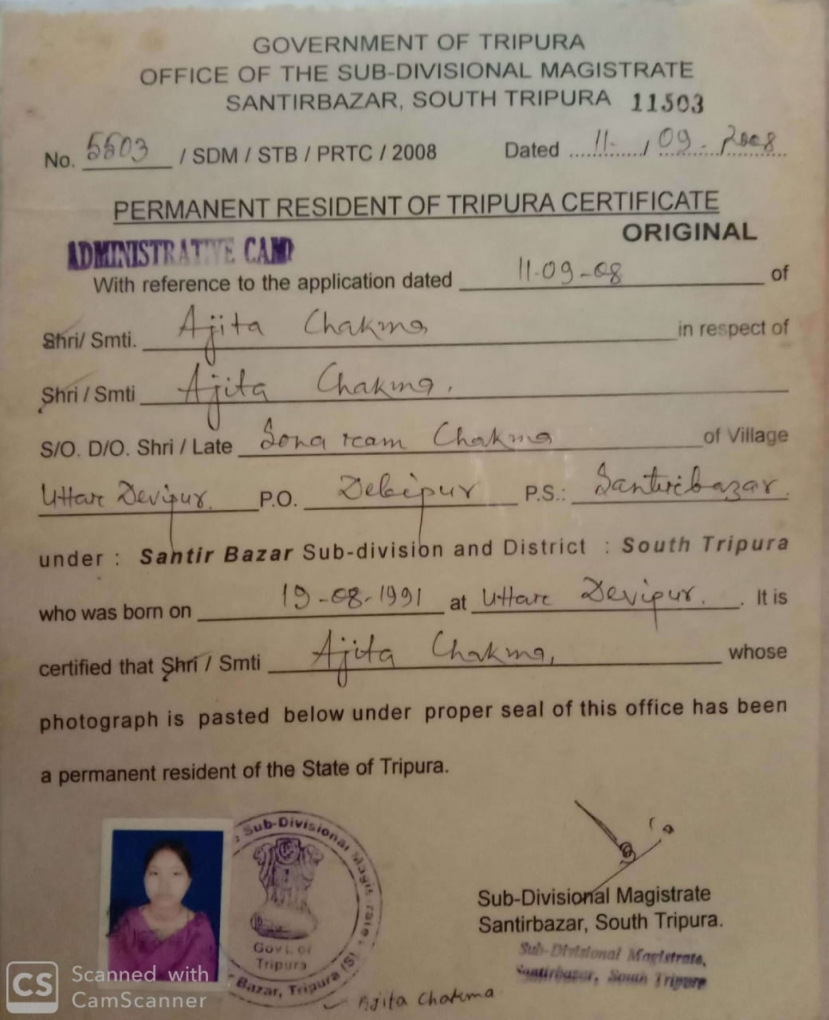 GOVERNMENT OF TRIPURA
OFFICE OF THE SUB-DIVISIONAL MAGISTRATE
SANTIRBAZAR, SOUTH TRIPURA 11503
No. 5503 / SDM / STB / PRTC / 2008 Dated 11 / 09 . 2008
PERMANENT RESIDENT OF TRIPURA CERTIFICATE
ORIGINAL
ADMINISTRATIVE CAMP
With reference to the application dated 11-09-08 of
Shri/ Smti. Ajita Chakma in respect of
Shri / Smti Ajita Chakma.
S/O. D/O. Shri / Late Sona ram Chakma of Village
Uttar Devipur. P.O. Debipur P.S.: Santirbazar.
under : Santir Bazar Sub-division and District : South Tripura
who was born on 19-08-1991 at Uttar Devipur. . It is
certified that Shri / Smti Ajita Chakma, whose
photograph is pasted below under proper seal of this office has been
a permanent resident of the State of Tripura.
Sub-Divisional Magistrate
Bazar, Tripura (S)
Govt. of
Tripura
Sub-Divisional Magistrate
Santirbazar, South Tripura.
Sub-Divisional Magistrate,
Santirbazar, South Tripura
Ajita Chakma
CS Scanned with
CamScanner